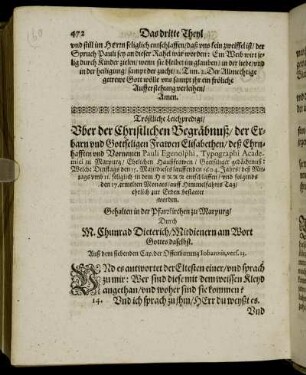 472 Das dritte Theyl
vnd still im Herrn seliglich entschlaffen/ daß vns sein zweiffelt/ der
Spruch Pauli sey an dieser Rahel war worden: Ein Weib wirt se-
lig durch Kinder zielen/ wenn sie bleibet im glauben/ in der liebe/ vnd in
der heiligung/ sampt der zucht/ 1. Tim. 2. Der Allmechtige
getrewe Gott wölle vns sampt jhr ein fröliche
Aufferstehung verleihen/
Amen.
Tröstliche Leichpredigt/
Vber der Christlichen Begräbnuß/ der Er-
barn vnd Gottseligen Frawen Elisabethen/ deß Ehrn-
hafften vnd Vornemen Pauli Egenolphi, Typographi Acade-
mici zu Marpurg/ Ehelichen Haußfrawen/
Welche Dienstags den 15. Maij dieses lauffenden 1604. Jahrs/
seliglich in dem HERRN entschlaffen/ vnd folgends
den 17. ernelten Monats/ auff Himmelfahrts Tag/
ehrlich zur Erden bestattet
worden.
Gehalten in der Pfarrkirchen zu Marpurg/
Durch
M. Chunrad Dieterich/ Mitdienern am Wort
Gottes daselbst.
Auß dem siebenden Cap. der Offenbarung Iohannis, vers. 13.
VNd es antwortet der Eltesten einer/ vnd sprach
zu mir: Wer sind diese mit dem weissen Kleyd
angethan/ vnd woher sind sie kommen?
14. Vnd ich sprach zu jhm/ HErr du weyst es.
Vnd